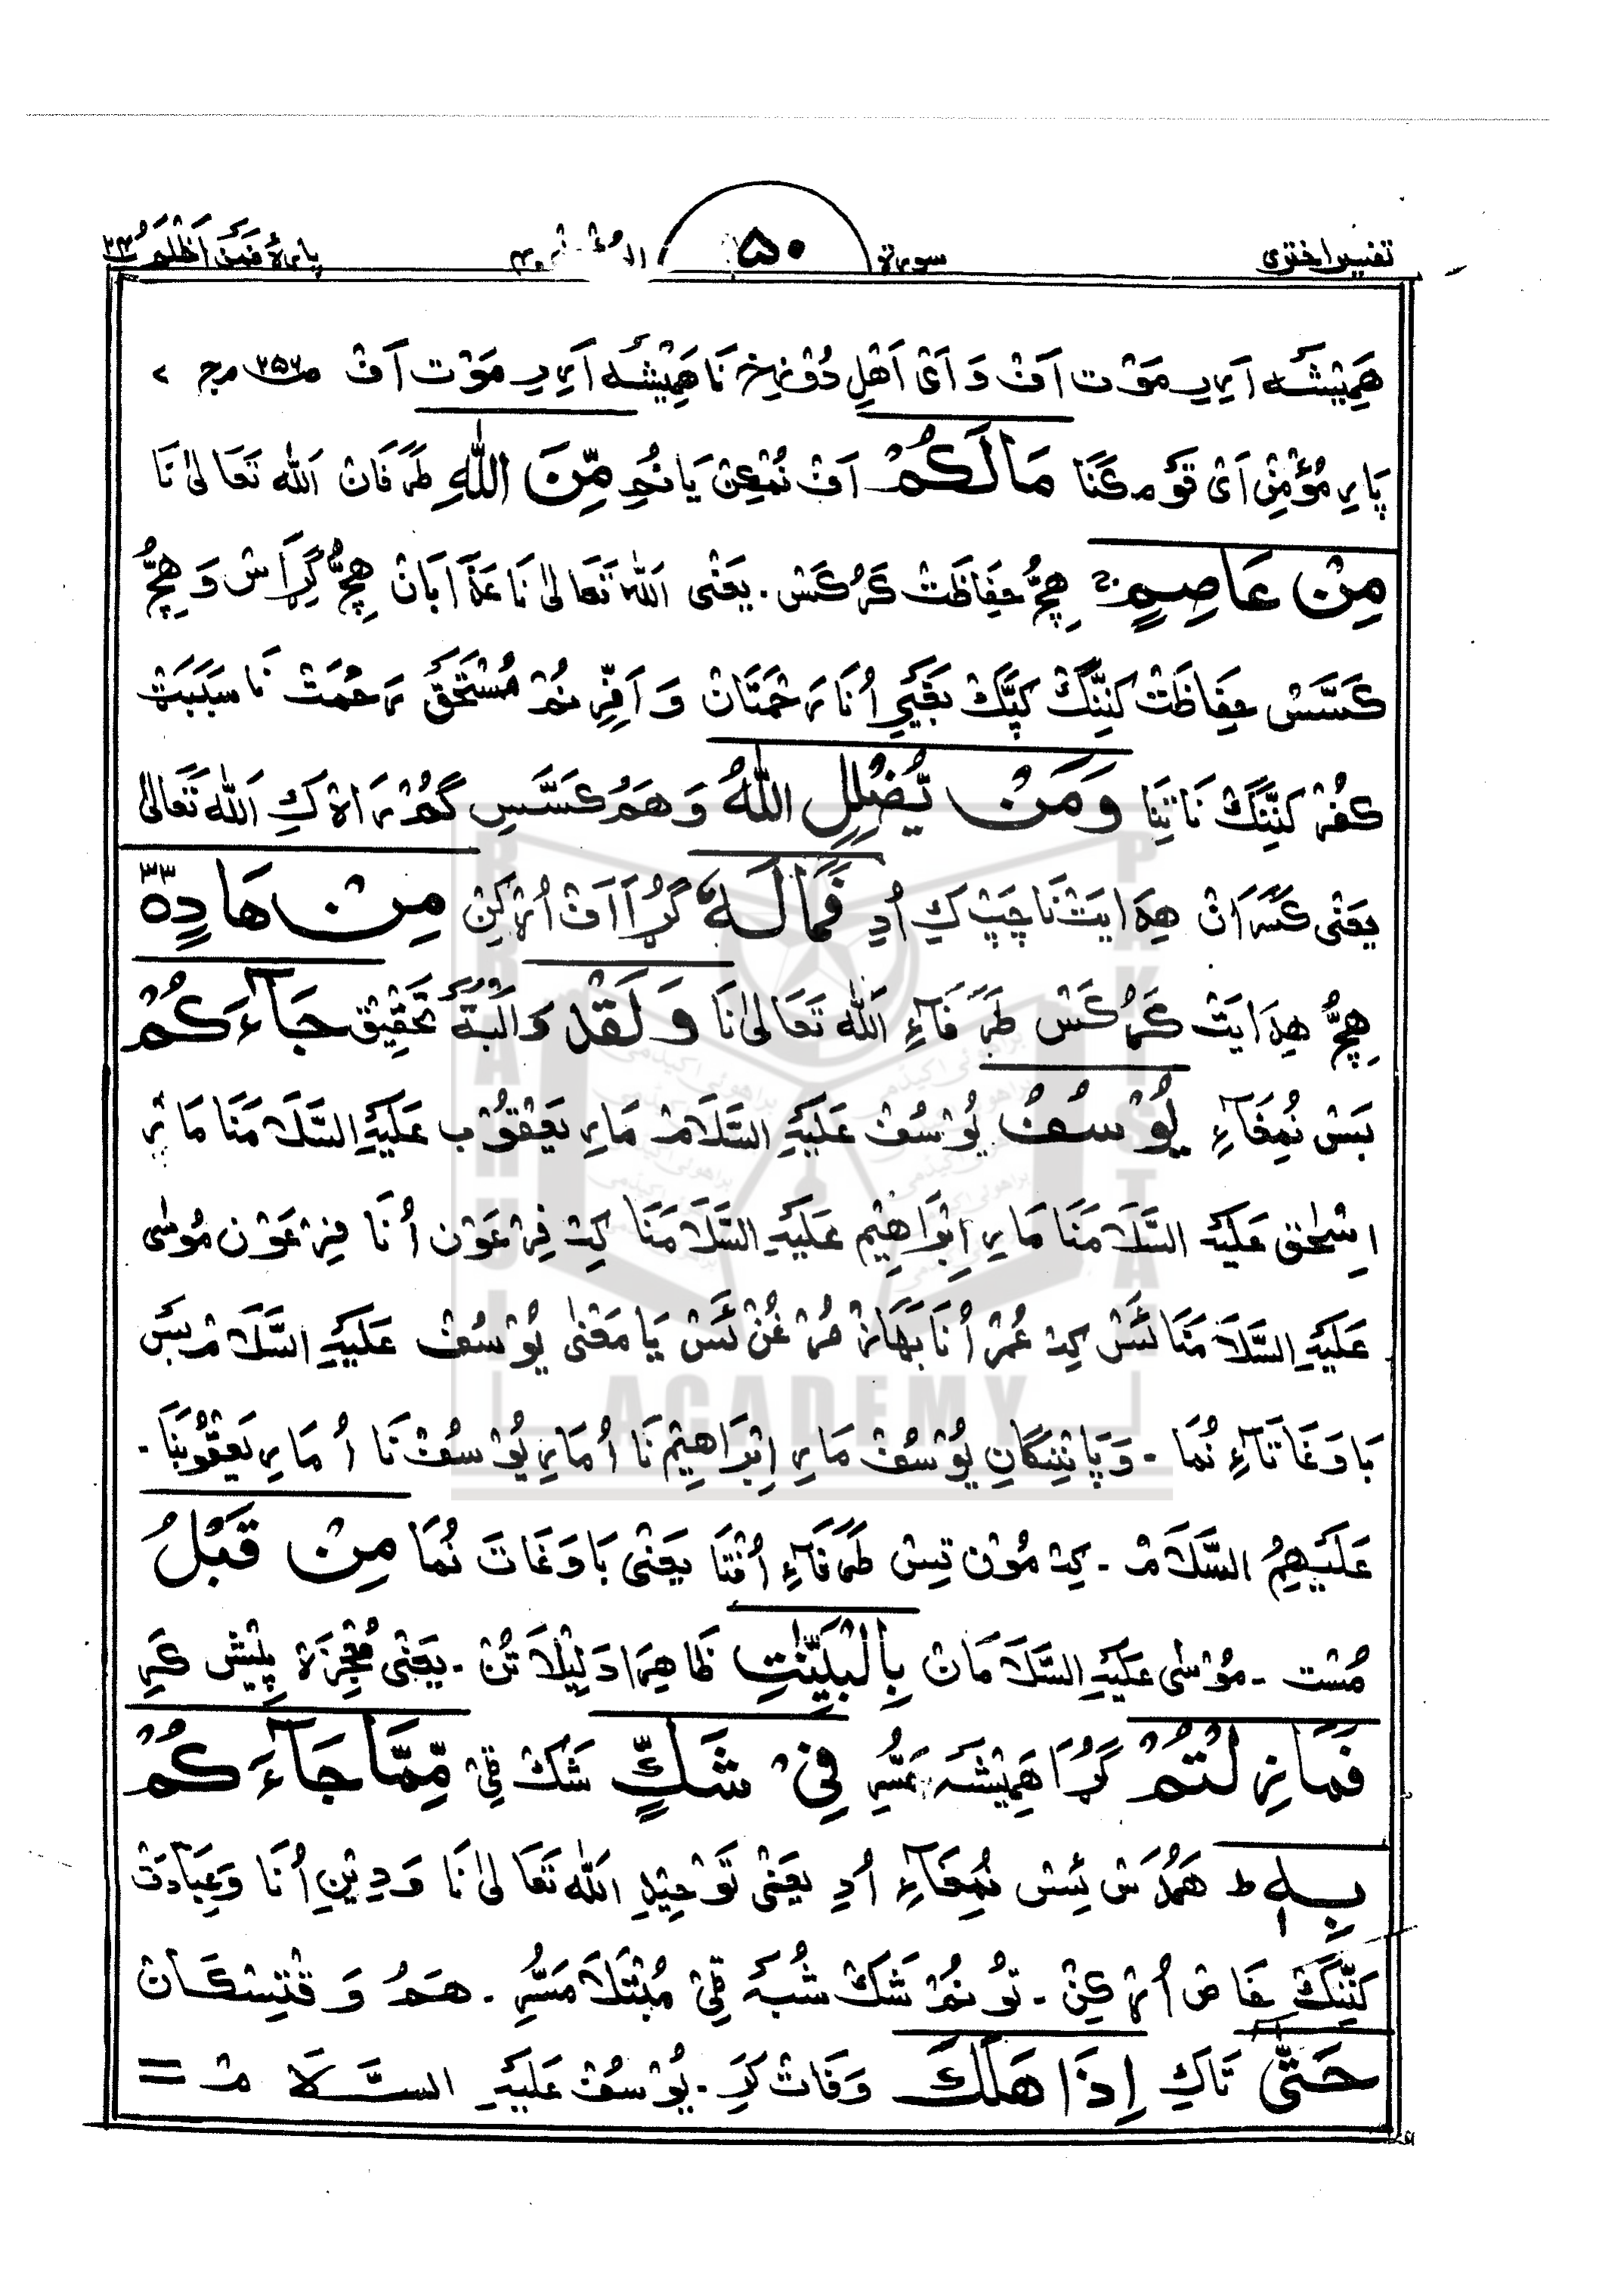 تفسیر اختری سورة ۵۰ المؤمن پارہ فمن اظلم ۲۴
هَمِیْشَہ اَرِیرِ مَوْت اَفْ وَ اَیْ اَهْلِ دُوْزِخ نَا هَمِیْشَہ اَرِیرِ مَوْت اَفْ
پَارِ مُؤْمِنْ اَیْ قَوْم کَنَا مَالَكُمْ اَفْ نُمْکِنْ یَا نُمِ مِّنَ اللّٰهِ طَرَفَانْ اَللّٰه تَعَالیٰ نَا
مِنْ عَاصِمٍ هِچُّ حِفَاظَتْ کَرُکَسْ ۔ یَعْنِی اَللّٰه تَعَالیٰ نَا عَذَابَانْ هِچُّ کِرَاسْ وَ هِچُّ
کَسَّسْ حِفَاظَتْ کِنِّنْگْ کَپَّکْ بَغَیْرِ اُنَا رَحْمَتَانْ وَ اَفِّرِ نُمْ مُسْتَحَقّ رَحْمَتْ نَا سَبَبَتْ
کُفْرْ کَنِنَّگْ نَا تَنَا وَمَنْ يُّضْلِلِ اللّٰهُ وَ هَمُ کَسَّسِ گُمْ رَاہ کِ اَللّٰه تَعَالیٰ
یَعْنِی کَسَرَانْ هِدَایَتْ نَا چَپْ کِ اُدِ فَمَالَهٗ گُڑَا اَفْ اُرْکِنْ مِنْ هَادٍ ۳۳
هِچُّ هِدَایَتْ کَرُکَسْ طَرَفَآءِ اَللّٰه تَعَالیٰ نَا وَلَقَدْ وَ اَلْبَتَّہ تَحْقِیْق جَآءَكُمْ
بَسْ نُمِغَآءِ يُوْسُفُ یُوْسُفْ عَلَیْهِ السَّلَامْ مَارِ یَعْقُوْب عَلَیْهِ السَّلَامَنَا مَارِ
اِسْحٰق عَلَیْهِ السَّلَامَنَا مَارِ اِبْرَاهِیْم عَلَیْهِ السَّلَامَنَا کِہ فِرْعَوْن اُنَا فِرْعَوْن مُوْسٰی
عَلَیْهِ السَّلَامَنَا ئَسْ کِہ عُمْر اُنَا بَهَازْ مُرْغُنْ ئَسْ یَا مَعْنٰی یُوْسُفْ عَلَیْهِ السَّلَامْ بَسْ
بَاوَغَاتَآءِ نُمَا ۔ وَ پَا نِنگَانِ یُوْسُفْ مَارِ اِبْرَاهِیْم نَا اُ مَارِ یُوْسُفْ نَا اُ مَارِ یَعْقُوْبَنَا ۔
عَلَیْهِمُ السَّلَامْ ۔ کِہ مُوْن تِسْ طَرَفَآءِ اُفْتَا یَعْنِی بَاوَغَاتَ نُمَا مِنْ قَبْلُ
مُسْت ۔ مُوْسٰی عَلَیْهِ السَّلَامَانْ بِالْبَيِّنٰتِ ظَاهِرَا دَلِیْلَاتَنْ ۔ یَعْنِی مُعْجِزَہ پِیْش کَرِ
فَمَا زِلْتُمْ گُڑَا هَمِیْشَہ مَسُّرِ فِیْ شَكٍّ شَكْ ٹِیْ مِّمَّا جَآءَكُمْ
بِهٖ ط هَمُدَسْ ئِسْ نُمِغَآءِ اُدِ یَعْنِی تَوْحِیْدِ اَللّٰه تَعَالیٰ نَا وَ دِیْنِ اُنَا وَ عِبَادَتْ
کَنِنَّگْ خَاصْ اُرْکِنْ ۔ تُو نُمْ شَكْ شُبَہ ٹِیْ مُبْتَلَا مَسُّرِ ۔ هَمُ وَقْتِسْکَانْ
حَتّٰی تَاکِ اِذَا هَلَكَ وَفَاتْ کَرَ ۔ یُوْسُفْ عَلَیْهِ السَّلَامْ =
BRAHUI
PAKISTAN
ACADEMY